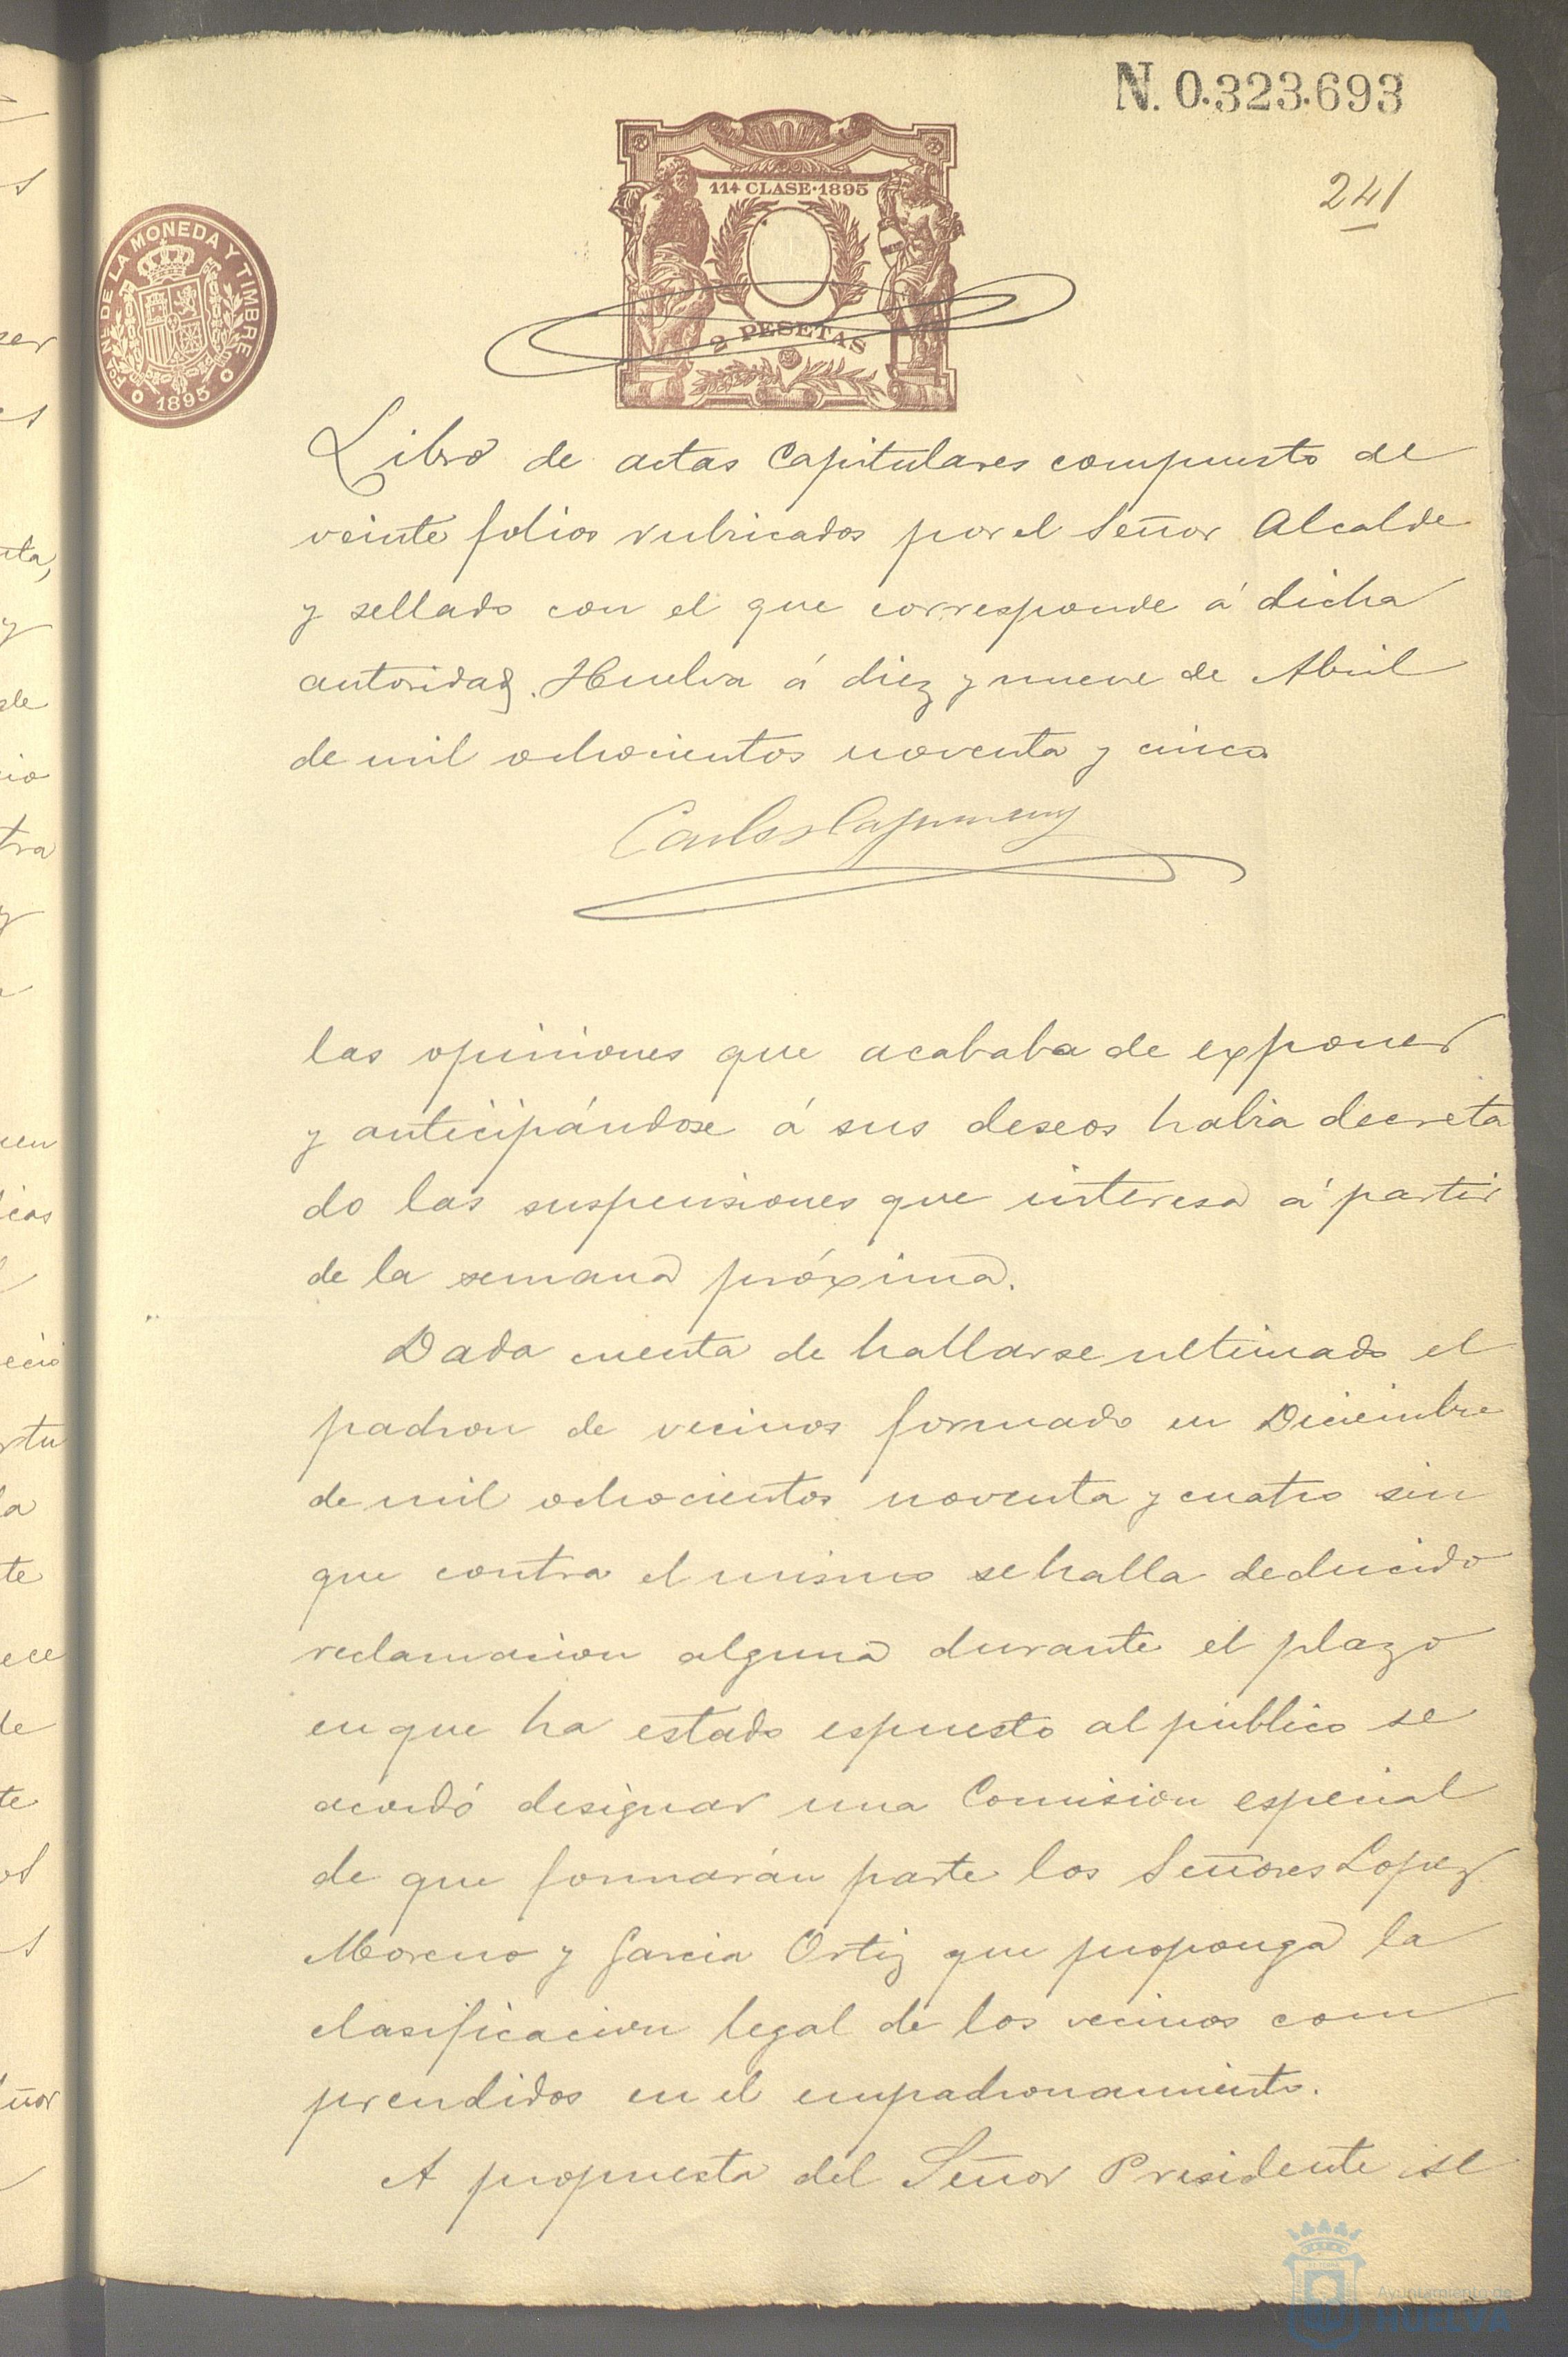 N. 0.323.693
241
11ª CLASE·1895
2 PESETAS
DE LA MONEDA Y TIMBRE
1895
Libro de actas Capitulares compuesto de
veinte folios rubricados por el Señor Alcalde
y sellado con el que corresponde á dicha
autoridad. Huelva á diez y nueve de Abril
de mil ochocientos noventa y cinco
Carlos
las opiniones que acababa de exponer
y anticipándose á sus deseos habia decreta
do las suspensiones que interesa á partir
de la semana próxima.
Dada cuenta de hallarse ultimado el
padron de vecinos formado en Diciembre
de mil ochocientos noventa y cuatro sin
que contra el mismo se halla deducido
reclamacion alguna durante el plazo
en que ha estado espuesto al publico se
acordó designar una Comision especial
de que formarán parte los Señores Lopez
Moreno y Garcia Ortiz que proponga la
clasificacion legal de los vecinos com
prendidos en el empadronamiento.
A propuesta del Señor Presidente se
Ayuntamiento de
HUELVA